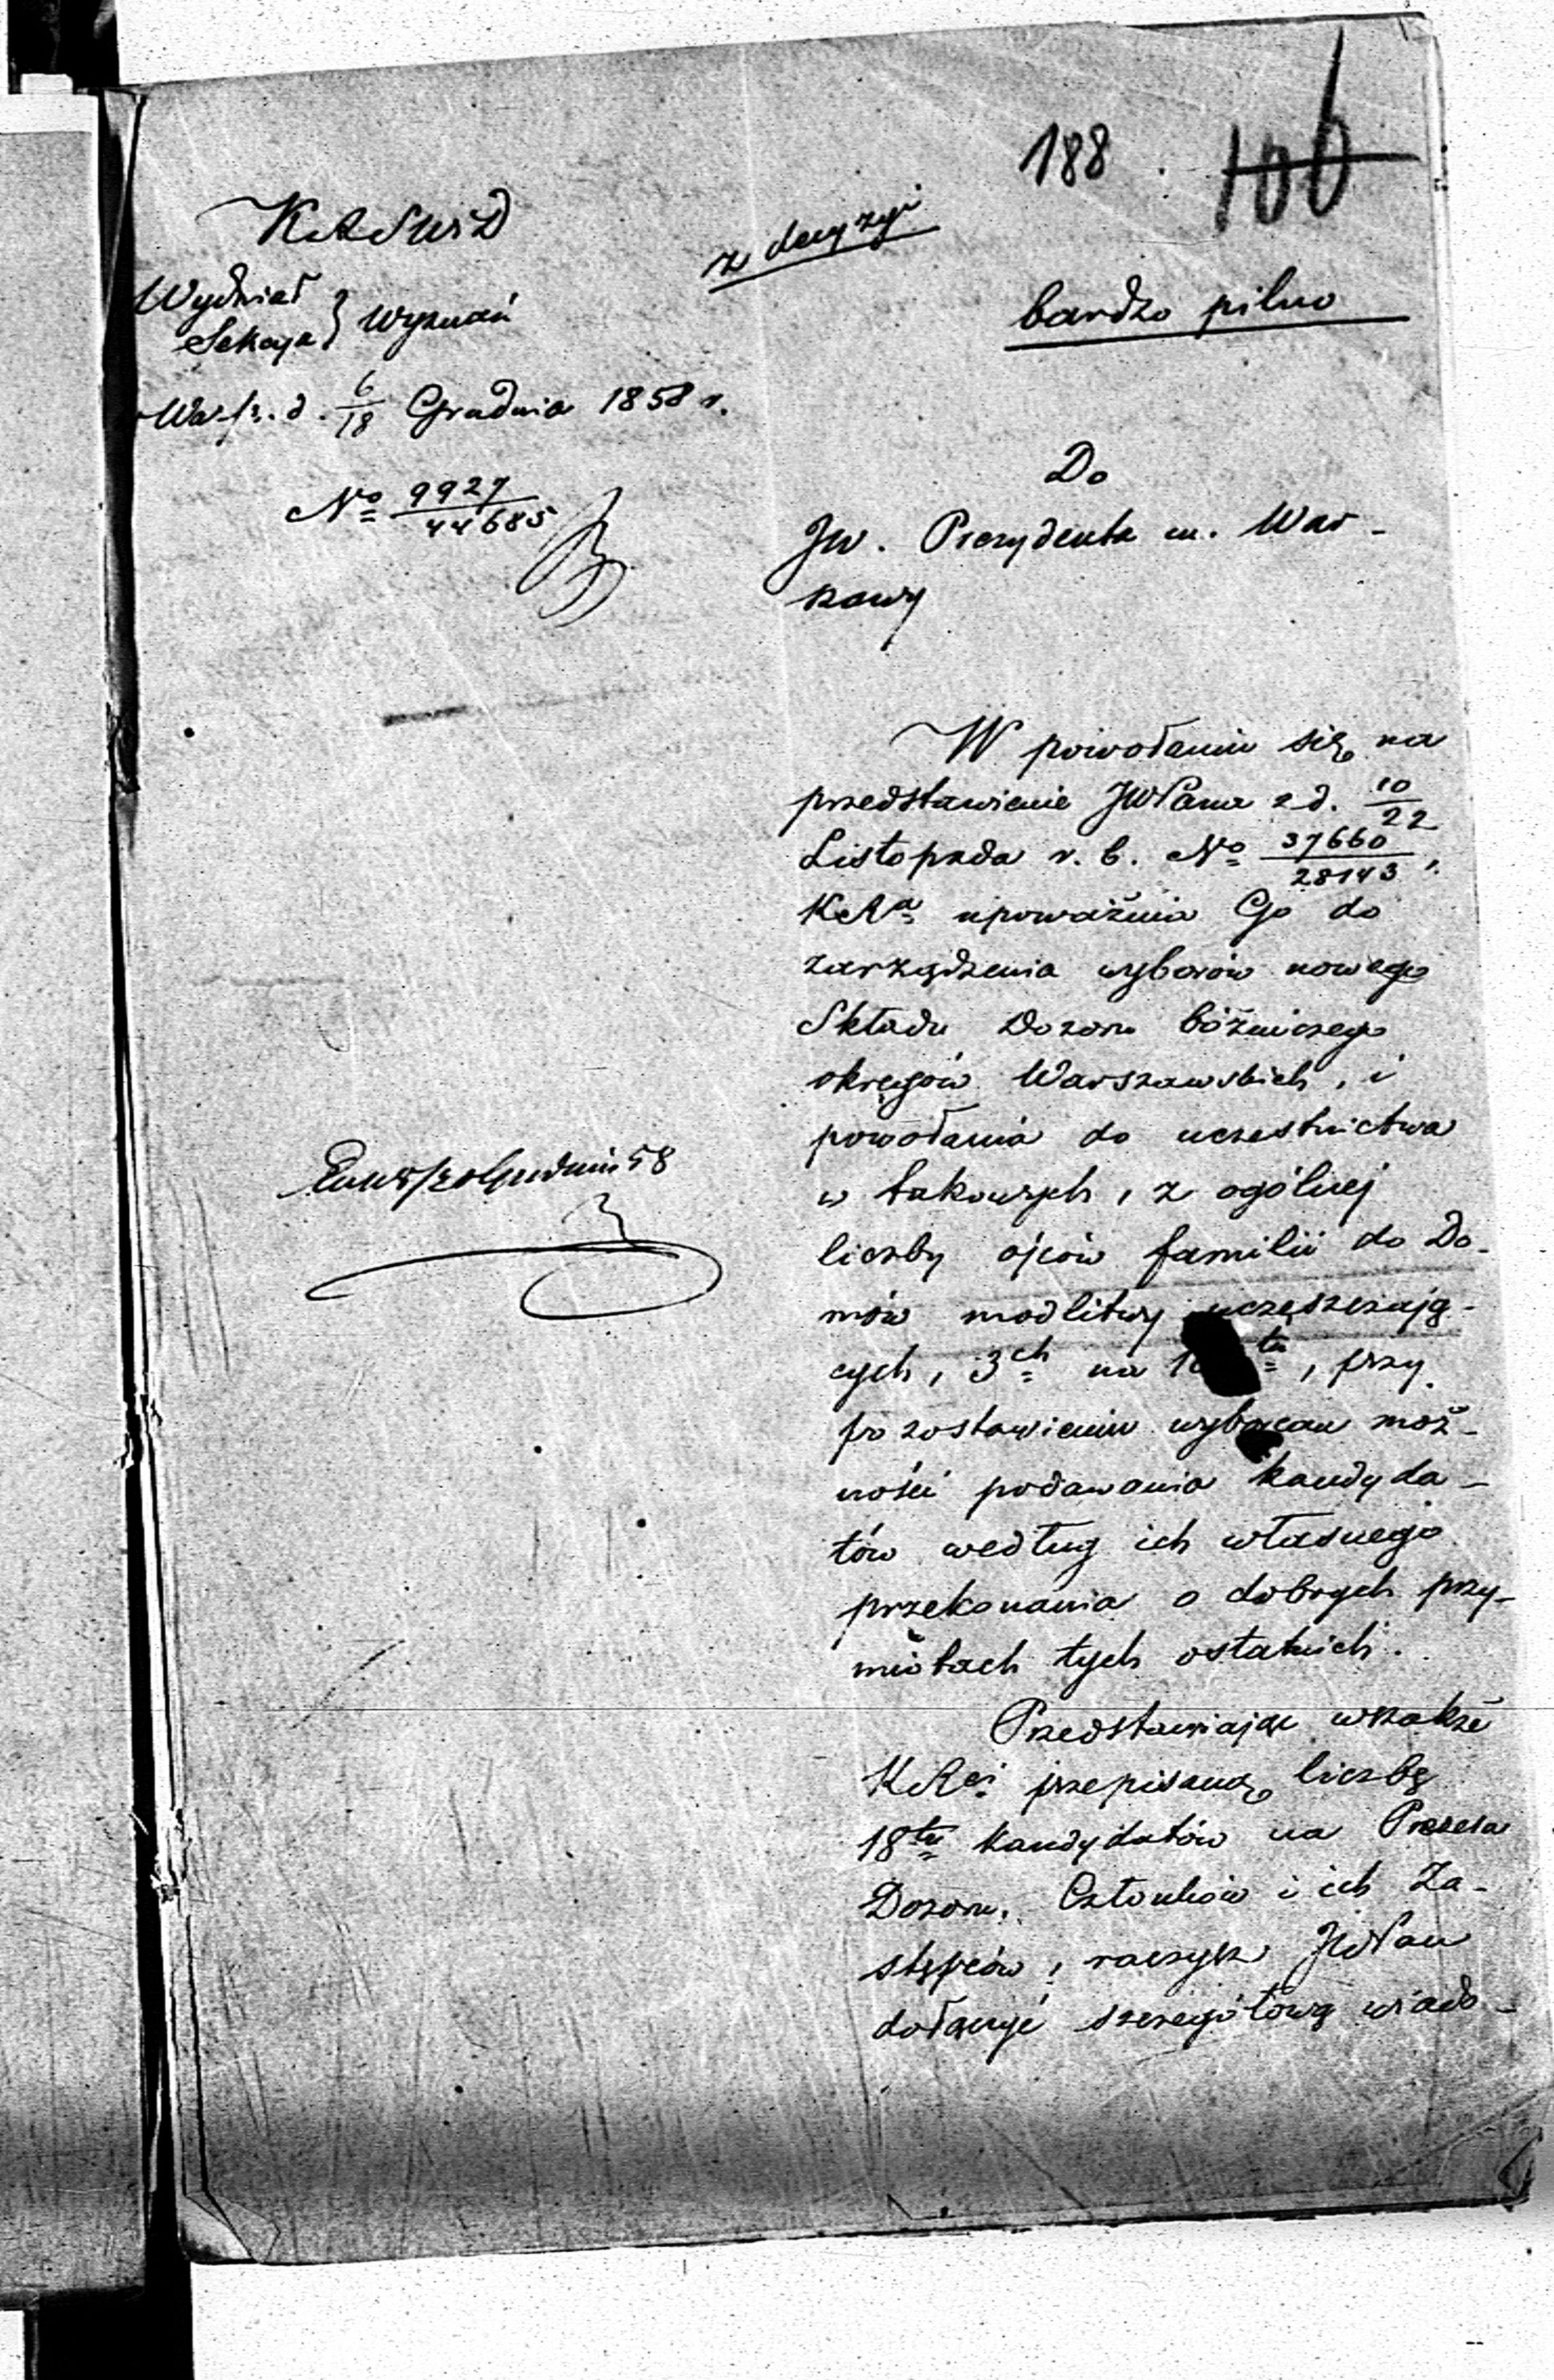 188
106
KRSWiD
z decyzyi
Wydział
Sekcya } Wyznań
bardzo pilno
Warsz. d. 6/18 Grudnia 1858 r.
No 9927/44685
Do
JW. Prezydenta m. War-
szawy
W powołaniu się na
przedstawienie JWPana z d. 10/22
Listopada r. b. No 37660/28143,
KRa upoważnia Go do
zarządzenia wyborów nowego
Składu Dozoru bóżniczego
okręgów Warszawskich, i
powołania do uczestnictwa
w takowych, z ogólnej
liczby ojców familii do Do-
mów modlitwy uczęszczają-
cych, 3ch na 10 , przy
pozostawieniu wyborcom moż-
ności podawania kandyda-
tów według ich własnego
przekonania o dobrych przy-
miotach tych ostatnich.
Przedstawiając wszakże
KRei przepisaną liczbę
18tu kandydatów na Prezesa
Dozoru, Członków i ich Za-
stępców, raczysz JWPan
dołączyć szczegółową wiado-
58